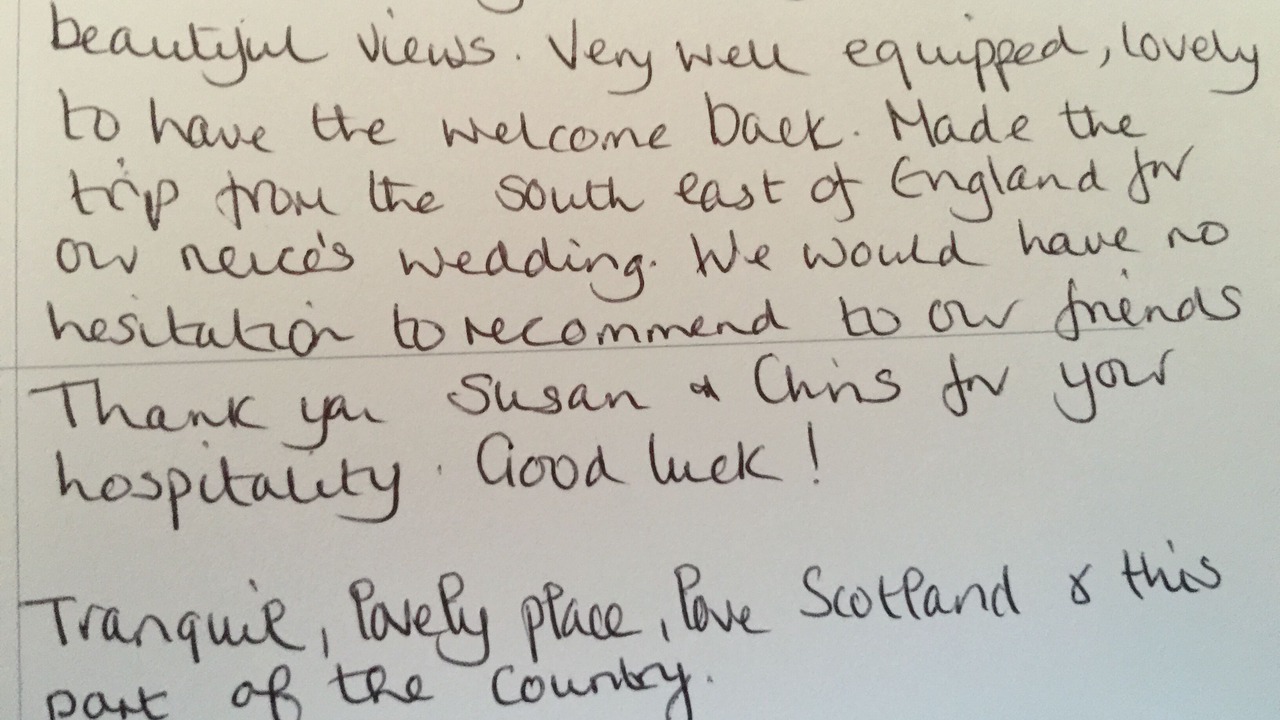 beautiful views. Very well equipped, lovely
to have the welcome back. Made the
trip from the south east of England for
our neice's wedding. We would have no
hesitation to recommend to our friends
Thank you Susan & Chris for your
hospitality. Good luck!
Tranquil, lovely place, love Scotland & this
part of the country.